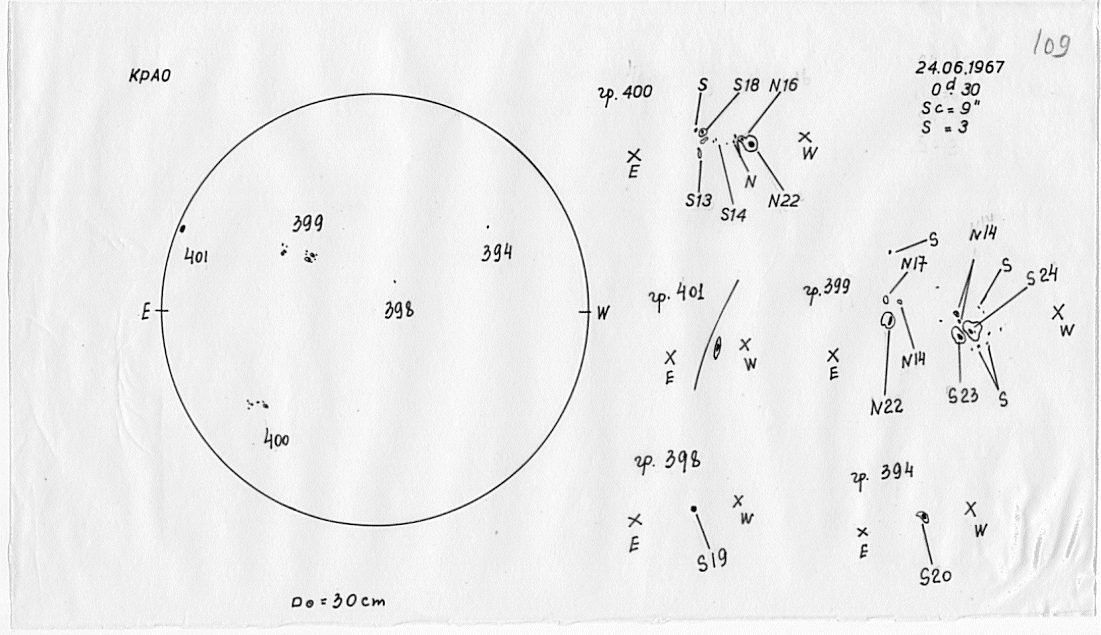 109
КрАО
24.06.1967
0d.30
Sc = 9"
S = 3
гр. 400
S
S18
N16
×
E
×
W
S13
S14
N
N22
399
401
394
E
W
398
400
гр. 401
×
E
×
W
гр. 399
S
N17
N14
S
S24
×
E
×
W
N22
N14
S23
S
гр. 398
×
E
×
W
S19
гр. 394
×
E
×
W
S20
D⊙ = 30 cm